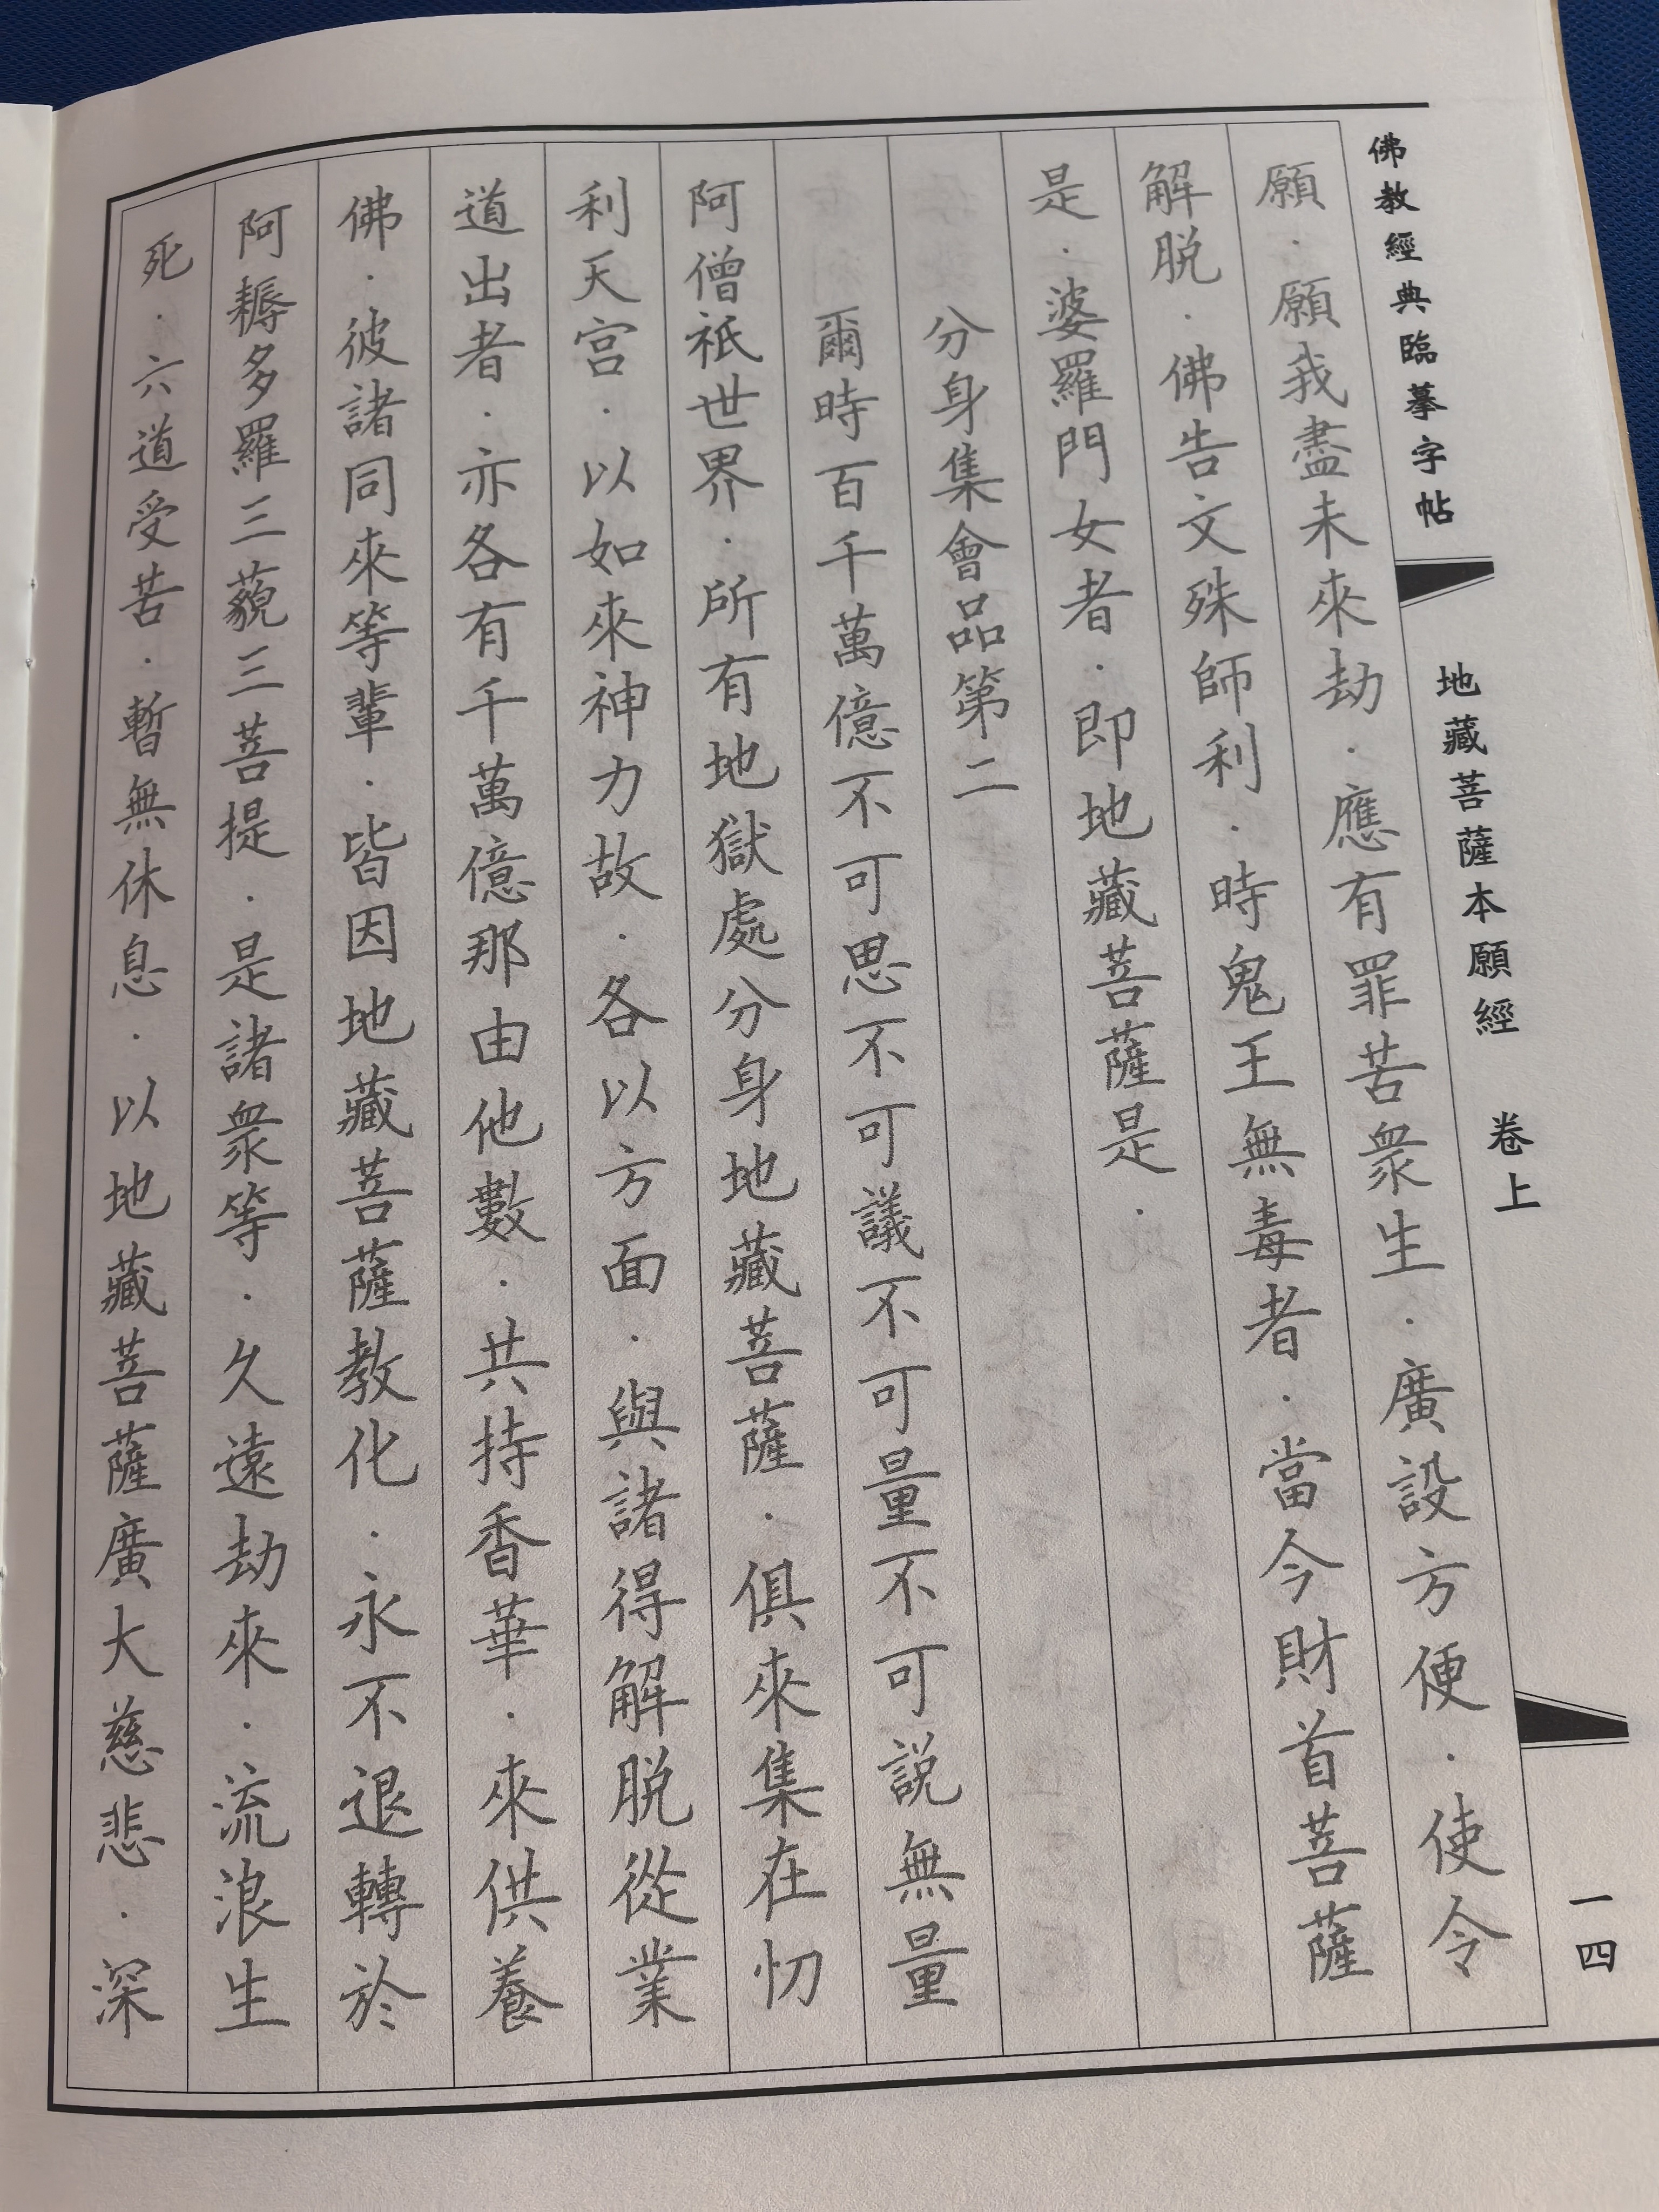 佛教經典臨摹字帖
地藏菩薩本願經 卷上
一四
願．願我盡未來劫．應有罪苦衆生．廣設方便．使令
解脱．佛告文殊師利．時鬼王無毒者．當今財首菩薩
是．婆羅門女者．即地藏菩薩是．
分身集會品第二
爾時百千萬億不可思不可議不可量不可説無量
阿僧祇世界．所有地獄處分身地藏菩薩．俱來集在忉
利天宮．以如來神力故．各以方面．與諸得解脱從業
道出者．亦各有千萬億那由他數．共持香華．來供養
佛．彼諸同來等輩．皆因地藏菩薩教化．永不退轉於
阿耨多羅三藐三菩提．是諸衆等．久遠劫來．流浪生
死．六道受苦．暫無休息．以地藏菩薩廣大慈悲．深